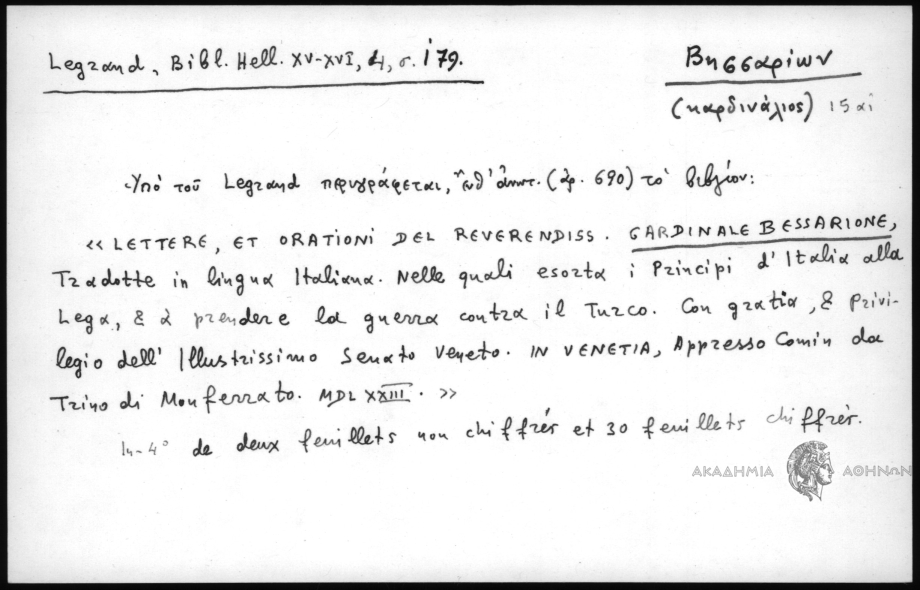 Legrand, Bibl. Hell. XV-XVI, 4, σ. 179.
Βησσαρίων
(καρδινάλιος) 15 αἰ
Ὑπὸ τοῦ Legrand περιγράφεται, (ἀρ. 690) τὸ βιβλίον:
« LETTERE, ET ORATIONI DEL REVERENDISS. CARDINALE BESSARIONE,
Tradotte in lingua Italiana. Nelle quali esorta i Principi d'Italia alla
Lega, & à prendere la guerra contra il Turco. Con gratia, & Privi-
legio dell' Illustrissimo Senato Veneto. IN VENETIA, Appresso Comin da
Trino di Monferrato. MDLXXIII. »
In-4° de deux feuillets non chiffrés et 30 feuillets chiffrés.
ΑΚΑΔΗΜΙΑ ΑΘΗΝΩΝ